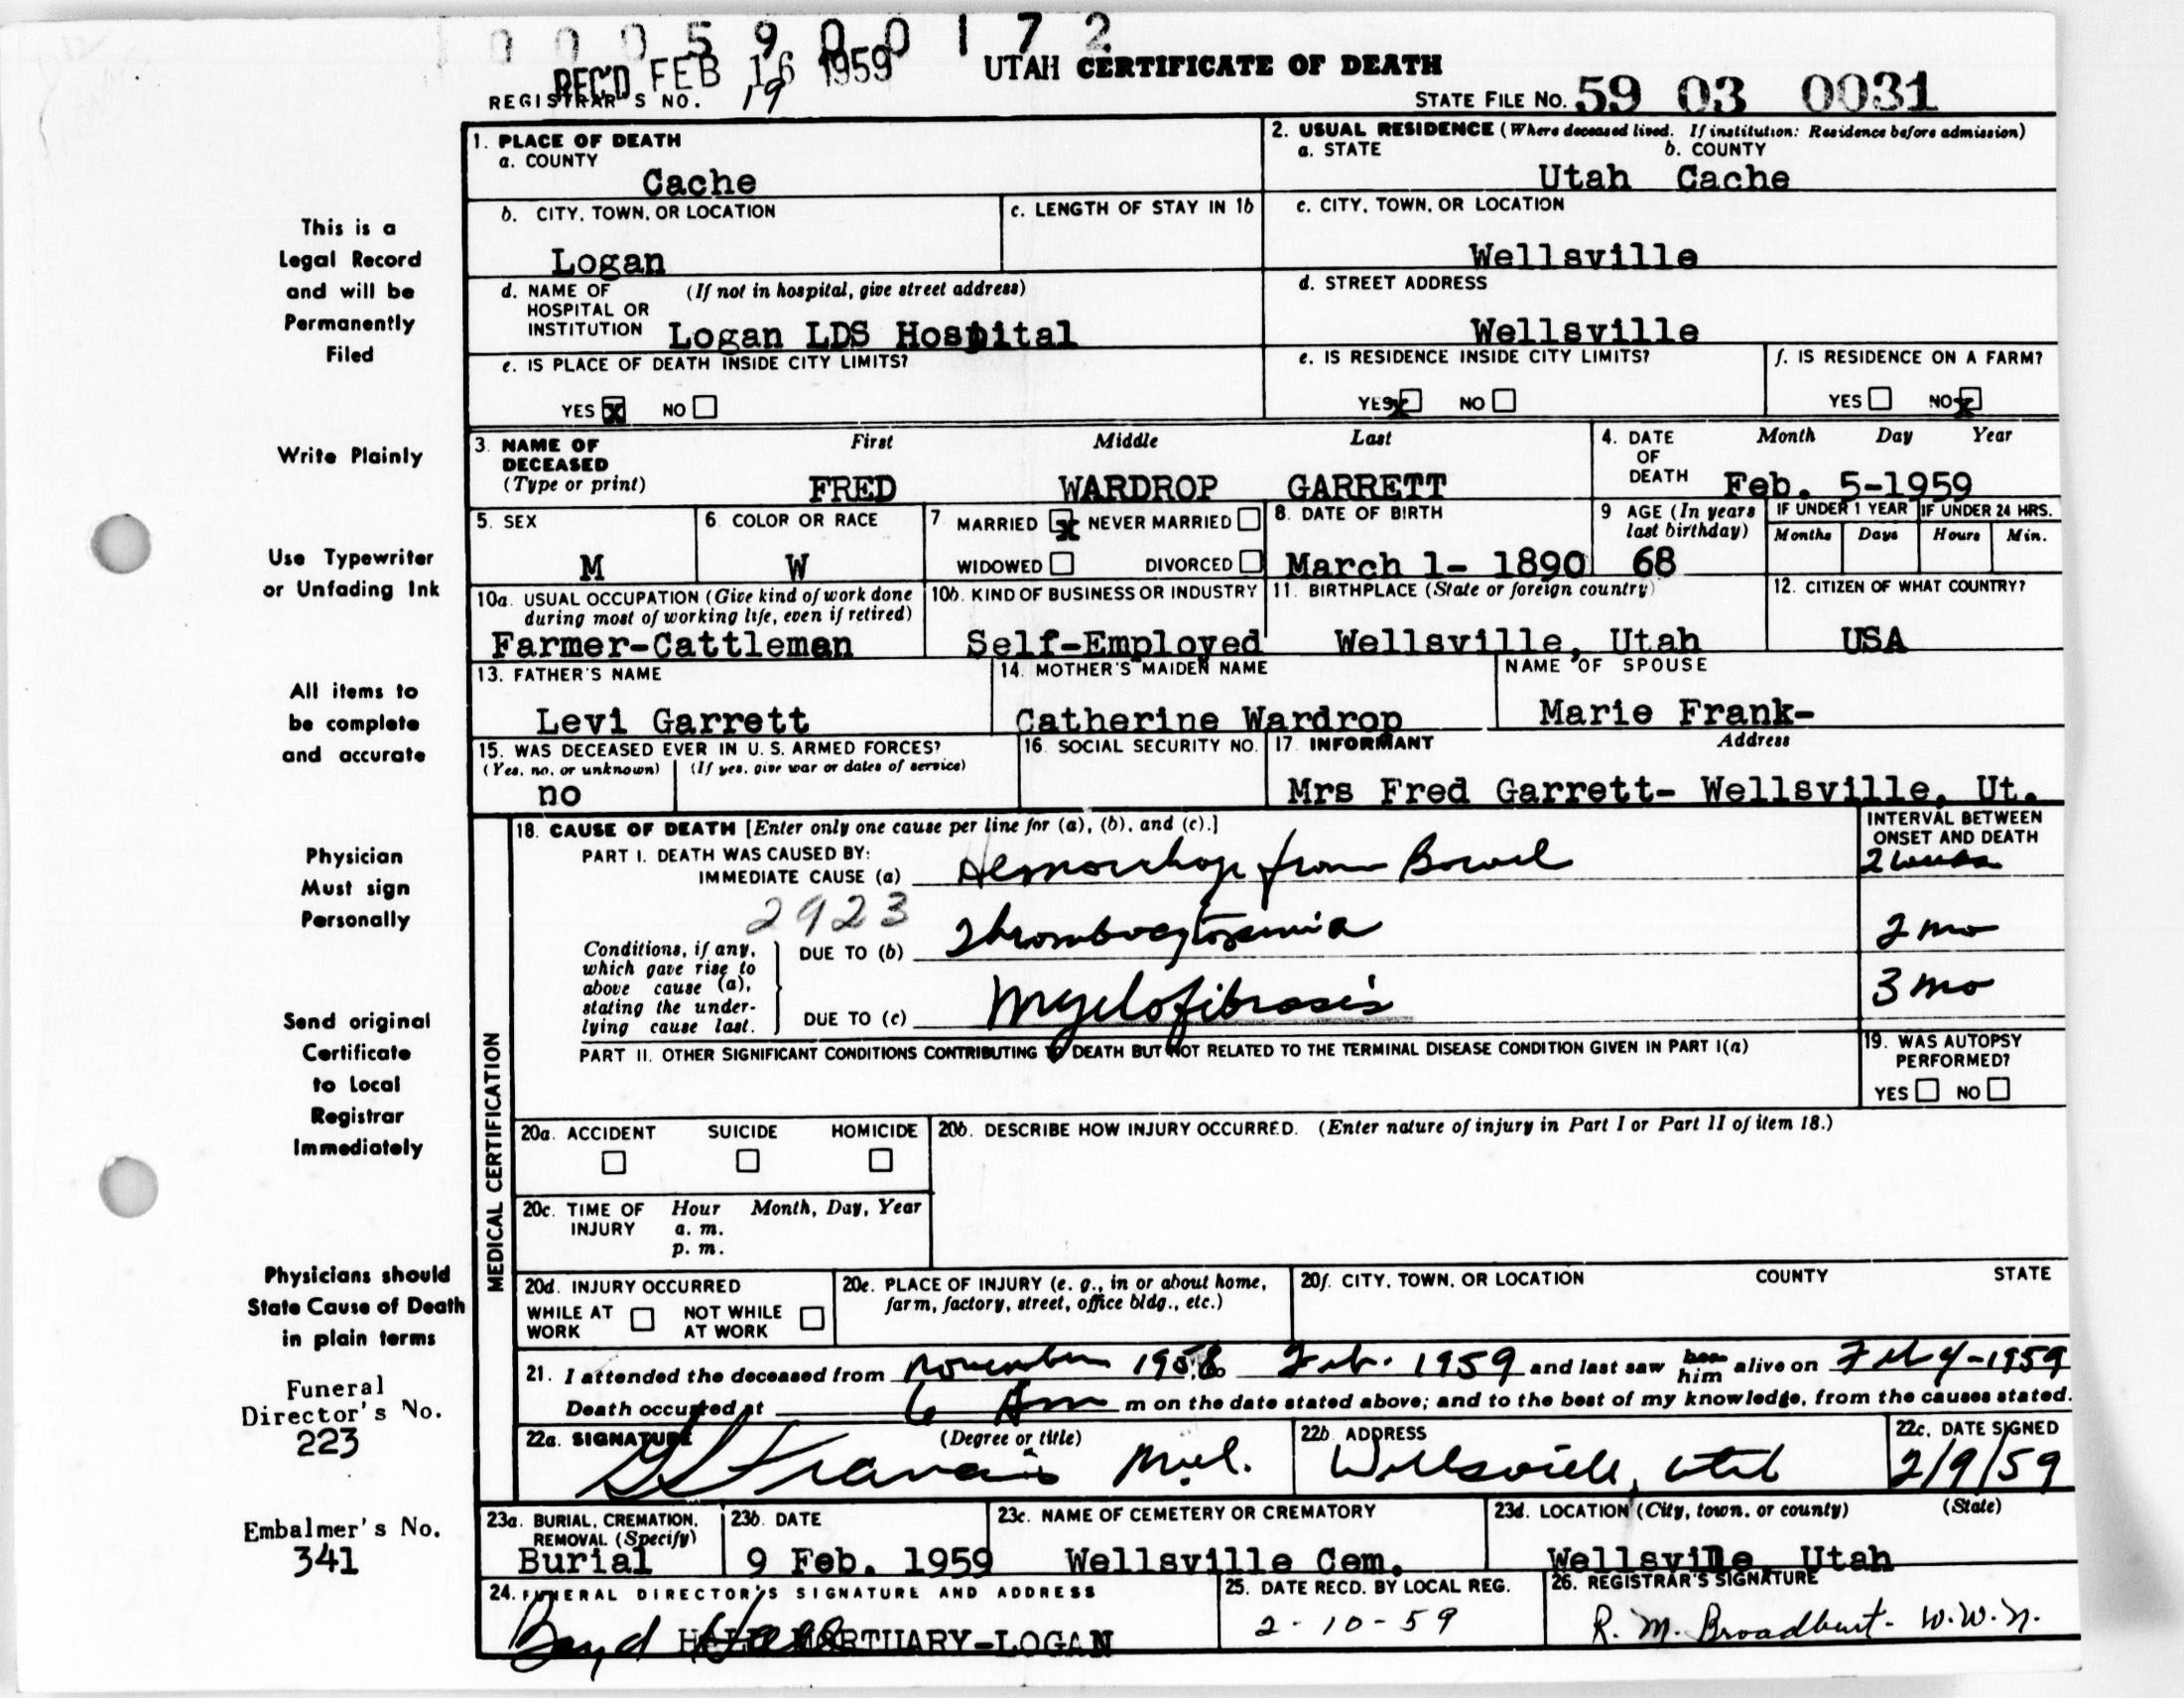 0 0 0 5 9 0 0 1 7 2
REC'D FEB 16 1959
UTAH CERTIFICATE OF DEATH
REGISTRAR'S NO. 19
STATE FILE NO. 59 03 0031
This is a
Legal Record
and will be
Permanently
Filed
Write Plainly
Use Typewriter
or Unfading Ink
All items to
be complete
and accurate
Physician
Must sign
Personally
Send original
Certificate
to Local
Registrar
Immediately
Physicians should
State Cause of Death
in plain terms
Funeral
Director's No.
223
Embalmer's No.
341
1. PLACE OF DEATH
a. COUNTY
Cache
2. USUAL RESIDENCE (Where deceased lived. If institution: Residence before admission)
a. STATE b. COUNTY
Utah Cache
b. CITY, TOWN, OR LOCATION
Logan
c. LENGTH OF STAY IN 1b
c. CITY, TOWN, OR LOCATION
Wellsville
d. NAME OF (If not in hospital, give street address)
HOSPITAL OR
INSTITUTION Logan LDS Hospital
d. STREET ADDRESS
Wellsville
e. IS PLACE OF DEATH INSIDE CITY LIMITS?
YES X NO
e. IS RESIDENCE INSIDE CITY LIMITS?
YES X NO
f. IS RESIDENCE ON A FARM?
YES NO X
3. NAME OF
DECEASED
(Type or print)
First Middle Last
FRED WARDROP GARRETT
4. DATE
OF
DEATH
Month Day Year
Feb. 5-1959
5. SEX
M
6. COLOR OR RACE
W
7 MARRIED X NEVER MARRIED
WIDOWED DIVORCED
8. DATE OF BIRTH
March 1- 1890
9 AGE (In years
last birthday)
68
IF UNDER 1 YEAR IF UNDER 24 HRS.
Months Days Hours Min.
10a. USUAL OCCUPATION (Give kind of work done
during most of working life, even if retired)
Farmer-Cattleman
10b. KIND OF BUSINESS OR INDUSTRY
Self-Employed
11. BIRTHPLACE (State or foreign country)
Wellsville, Utah
12. CITIZEN OF WHAT COUNTRY?
USA
13. FATHER'S NAME
Levi Garrett
14. MOTHER'S MAIDEN NAME
Catherine Wardrop
NAME OF SPOUSE
Marie Frank-
15. WAS DECEASED EVER IN U. S. ARMED FORCES?
(Yes, no, or unknown) (If yes, give war or dates of service)
no
16. SOCIAL SECURITY NO.
17. INFORMANT Address
Mrs Fred Garrett- Wellsville, Ut.
MEDICAL CERTIFICATION
18. CAUSE OF DEATH [Enter only one cause per line for (a), (b), and (c).]
INTERVAL BETWEEN
ONSET AND DEATH
PART I. DEATH WAS CAUSED BY:
IMMEDIATE CAUSE (a) Hemorrhage from Bowel 2 weeks
2923
Conditions, if any,
which gave rise to
above cause (a),
stating the under-
lying cause last.
DUE TO (b) Thrombocytopenia 2 mo
DUE TO (c) Myelofibrosis 3 mo
PART II. OTHER SIGNIFICANT CONDITIONS CONTRIBUTING TO DEATH BUT NOT RELATED TO THE TERMINAL DISEASE CONDITION GIVEN IN PART I(a)
19. WAS AUTOPSY
PERFORMED?
YES NO
20a. ACCIDENT SUICIDE HOMICIDE
20b. DESCRIBE HOW INJURY OCCURRED. (Enter nature of injury in Part I or Part II of item 18.)
20c. TIME OF
INJURY
Hour Month, Day, Year
a. m.
p. m.
20d. INJURY OCCURRED
WHILE AT
WORK
NOT WHILE
AT WORK
20e. PLACE OF INJURY (e. g., in or about home,
farm, factory, street, office bldg., etc.)
20f. CITY, TOWN, OR LOCATION COUNTY STATE
21. I attended the deceased from November 1958 Feb. 1959 and last saw her him alive on Feb 4-1959
Death occurred at 6 Am m on the date stated above; and to the best of my knowledge, from the causes stated.
22a. SIGNATURE (Degree or title)
G L Francis M.D.
22b ADDRESS
Wellsville, Utah
22c. DATE SIGNED
2/9/59
23a. BURIAL, CREMATION,
REMOVAL (Specify)
Burial
23b. DATE
9 Feb. 1959
23c. NAME OF CEMETERY OR CREMATORY
Wellsville Cem.
23d. LOCATION (City, town, or county) (State)
Wellsville, Utah
24. FUNERAL DIRECTOR'S SIGNATURE AND ADDRESS
Boyd Hall
HALL MORTUARY-LOGAN
25. DATE RECD. BY LOCAL REG.
2-10-59
26. REGISTRAR'S SIGNATURE
R. M. Broadbent- W.W.N.